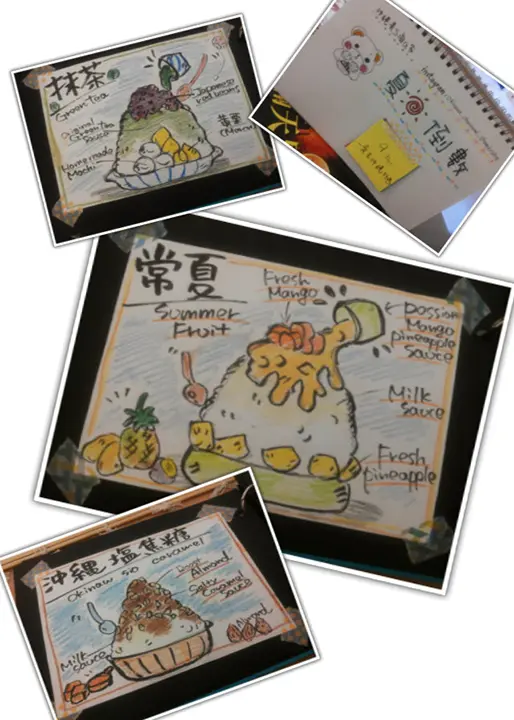 抹茶
Green tea
Japanese
red beans
Original
Green tea
Sauce
Homemade
Mochi
夏
倒數
常夏
Summer
Fruit
Fresh
Mango
passion
Mango
pineapple
Sauce
Milk
Sauce
Fresh
pineapple
沖縄塩焦糖
Okinaw so caramel
Almond
Salty
Caramel
Sauce
Milk
Sauce
Almond